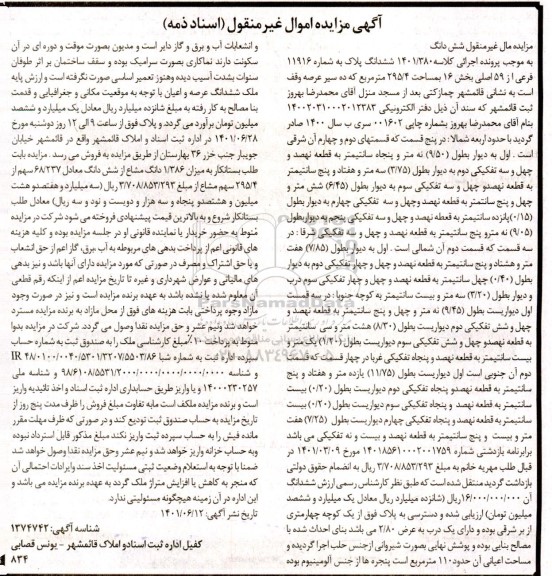 آگهی مزایده اموال غیر منقول (اسناد ذمه)
مزایده مال غیر منقول شش دانگ
به موجب پرونده اجرائی کلاسه ۱۴۰۱/۳۸۰ ششدانگ پلاک به شماره ۱۱۹۱۶
فرعی از ۵۹ اصلی بخش ۱۶ بمساحت ۲۹۵/۴ مترمربع که ده سیر عرصه وقف
است به نشانی قائمشهر چمازکتی بعد از مسجد منزل آقای محمدرضا بهروز
ثبت قائمشهر که سند آن ذیل دفتر الکترونیکی ۱۴۰۰۲۰۳۱۰۰۰۲۰۱۲۳۸۳
بنام آقای محمدرضا بهروز بشماره چاپی ۰۰۱۶۰۲ سری ب سال ۱۴۰۰ صادر
گردید با حدود اربعه شمالا : در پنج قسمت که قسمتهای دوم و چهارم آن شرقی
است . اول به دیوار بطول (۹/۵۰) نه متر و پنجاه سانتیمتر به قطعه نهصد و
چهل و سه تفکیکی دوم به دیوار بطول (۳/۷۵) سه متر و هفتاد و پنج سانتیمتر
به قطعه نهصدو چهل و سه تفکیکی سوم به دیوار بطول (۶/۴۵) شش متر و
چهل و پنج سانتیمتر به قطعه نهصد وچهل و سه تفکیکی چهارم به دیوار بطول
(۰/۱۵) پانزده سانتیمتر به قطعه نهصد و چهل و سه تفکیکی پنجم به دیوار بطول
(۹/۰۵) نه مترو پنج سانتیمتر به قطعه نهصد و چهل و تفکیکی شرقا : در
سه قسمت که قسمت دوم آن شمالی است . اول به دیوار بطول (۷/۸۵) هفت
متر و هشتاد و پنج سانتیمتر به قطعه نهصد و چهل و چهار تفکیکی دوم به دیوار
بطول (۰/۴۰) چهل سانتیمتر به قطعه نهصد و چهل و چهار تفکیکی سوم درب
و دیوار بطول (۳/۲۰) سه متر و بیست سانتیمتر به کوچه جنوبا : در سه قسمت
اول دیواریست بطول (۹/۴۵) نه متر و چهل و پنج سانتیمتر به قطعه نهصد و
چهل و شش تفکیکی دوم دیواریست بطول (۸/۳۰) هشت متر و سی سانتیمتر
به قطعه نهصدو چهل و شش تفکیکی سوم دیواریست بطول (۱/۲۰) یک مترو
بیست سانتیمتر به قطعه نهصد و پنجاه تفکیکی غربا در چهار قسمت که قسمت
دوم آن جنوبی است اول دیواریست بطول (۱۱/۷۵) یازده متر و هفتاد و پنج
سانتیمتر به قطعه نهصدو پنجاه تفکیکی دوم دیواریست بطول (۰/۲۰) بیست
سانتیمتر به قطعه نهصدو پنجاه تفکیکی سوم دیواریست بطول (۰/۲۰) بیست
سانتیمتر به قطعه نهصد و پنجاه تفکیکی چهارم دیواریست بطول (۷/۲۵) هفت
متر و بیست و پنج سانتیمتر به قطعه نهصد و بیست و نه تفکیکی می باشد
برابرنامه بازداشتی شماره ۱۴۰۱۸۵۶۱۰۰۰۲۰۰۱۷۵۹ مورخ ۱۴۰۱/۰۳/۰۹ در
قبال طلب مهریه خانم به مبلغ ۳/۷۰۸/۸۵۳/۲۹۳ ریال به انضمام حقوق دولتی
بازداشت گردید منتقل شده است که طبق نظر کارشناس رسمی ارزش ششدانگ
آن ۱۶/۰۰۰/۰۰۰/۰۰۰ ریال (شانزده میلیارد ریال معادل یک میلیارد و ششصد
میلیون تومان) ارزیابی شده و دسترسی به پلاک فوق از یک کوچه چهارمتری
از بر شرقی بوده و دارای یک درب به عرض ۲/۸۰ می باشد بنای احداث شده با
مصالح بنایی بوده و پوشش نهایی بصورت شیروانی ازجنس حلب اجرا گردیده و
مساحت اعیانی آن حدود ۱۱۰ مترمربع است پنجره ها از جنس آلومینیوم بوده
و انشعابات آب و برق و گاز دایر است و مدیون بصورت موقت و دوره ای در آن
سکونت دارند نماکاری بصورت سرامیک بوده و سقف ساختمان بر اثر طوفان
سنوات بشدت آسیب دیده وهنوز تعمیر اساسی صورت نگرفته است و ارزش پایه
ملک ششدانگ عرصه و اعیان با توجه به موقعیت مکانی و جغرافیایی و قدمت
بنا مصالح به کار رفته به مبلغ شانزده میلیارد ریال معادل یک میلیارد و ششصد
میلیون تومان برآورد می گردد. و پلاک فوق از ساعت ۹ الی ۱۲ روز دوشنبه مورخ
۱۴۰۱/۰۶/۲۸ در اداره ثبت اسناد و املاک قائمشهر واقع در قائمشهر خیابان
جویبار جنب خزر ۳۶ بهارستان از طریق مزایده به فروش می رسد . مزایده بابت
طلب بستانکار به میزان ۱/۳۸۶ دانگ مشاع از شش دانگ معادل ۶۸/۲۳۷ سهم از
۲۹۵/۴ سهم مشاع از مبلغ ۳/۷۰۸/۸۵۳/۲۹۳ ریال (سه میلیارد و هفتصدو هشت
میلیون و هشتصدو پنجاه و سه هزار و دویست و نود و سه ریال) معادل طلب
بستانکار شروع و به بالاترین قیمت پیشنهادی فروخته می شود شرکت در مزایده
منوط به حضور خریدار یا نماینده قانونی او در جلسه مزایده بوده و کلیه هزینه
های قانونی اعم از پرداخت بدهی های مربوطه به آب، برق، گاز اعم از حق انشعاب
و یا حق اشتراک و مصرف در صورتی که مورد مزایده دارای آنها باشد و نیز بدهی
های مالیاتی و عوارض شهرداری و غیره تا تاریخ مزایده اعم از اینکه رقم قطعی
آن معلوم شده یا نشده باشد به عهده برنده مزایده است و نیز در صورت وجود
مازاد وجوه پرداختی بابت هزینه های فوق از محل مازاد به برنده مزایده مسترد
خواهد شد ونیم عشر و حق مزایده نقدا وصول می گردد. شرکت در مزایده بدوا
منوط به پرداخت ۱۰٪ مبلغ کارشناسی ملک را به صندوق ثبت به شماره حساب
سپرده اداره ثبت به شماره شبا IR ۴۸۰۱۰۰/۰۰۴۰/۵۳۰۱/۳۲۰۷/۵۵۰۳/۸۶
و شناسه ۹۸۶۱۰۸/۵۵۳۱/۲۰۰۰/۰۰۰۰/۰۰۰۰/۰۰۰۰ و شناسه ملی
۱۴۰۰۰۲۳۰۲۵۷ و یا واریز طریق حسابداری اداره ثبت اسناد و اخذ تائیدیه واریز
است و برنده مزایده مکلف است مابه تفاوت مبلغ فروش را ظرف مدت پنج روز از
تاریخ مزایده به حساب صندوق ثبت تودیع کند و در صورتی که ظرف مهلت مقرر
مانده فیش را به حساب سپرده ثبت واریز نکند مبلغ مذکور قابل استرداد نبوده
وبه حساب خزانه واریز خواهد شد و نیم عشر وحق مزایده نقدا وصول خواهد شد
ضمنا با توجه به استعلام وضعیت ثبتی مسئولیت اخذ سند وایرادات احتمالی آن
که منجر به کاهش یا افزایش متراژ ملک گردد به عهده برنده مزایده می باشد و
این اداره در آن زمینه هیچگونه مسئولیتی ندارد.
تاریخ نشر آگهی: ۱۴۰۱/۰۶/۱۲
شناسه آگهی: ۱۳۷۴۷۴۲
کفیل اداره ثبت اسناد و املاک قائمشهر - یونس قصابی
۸۳۴